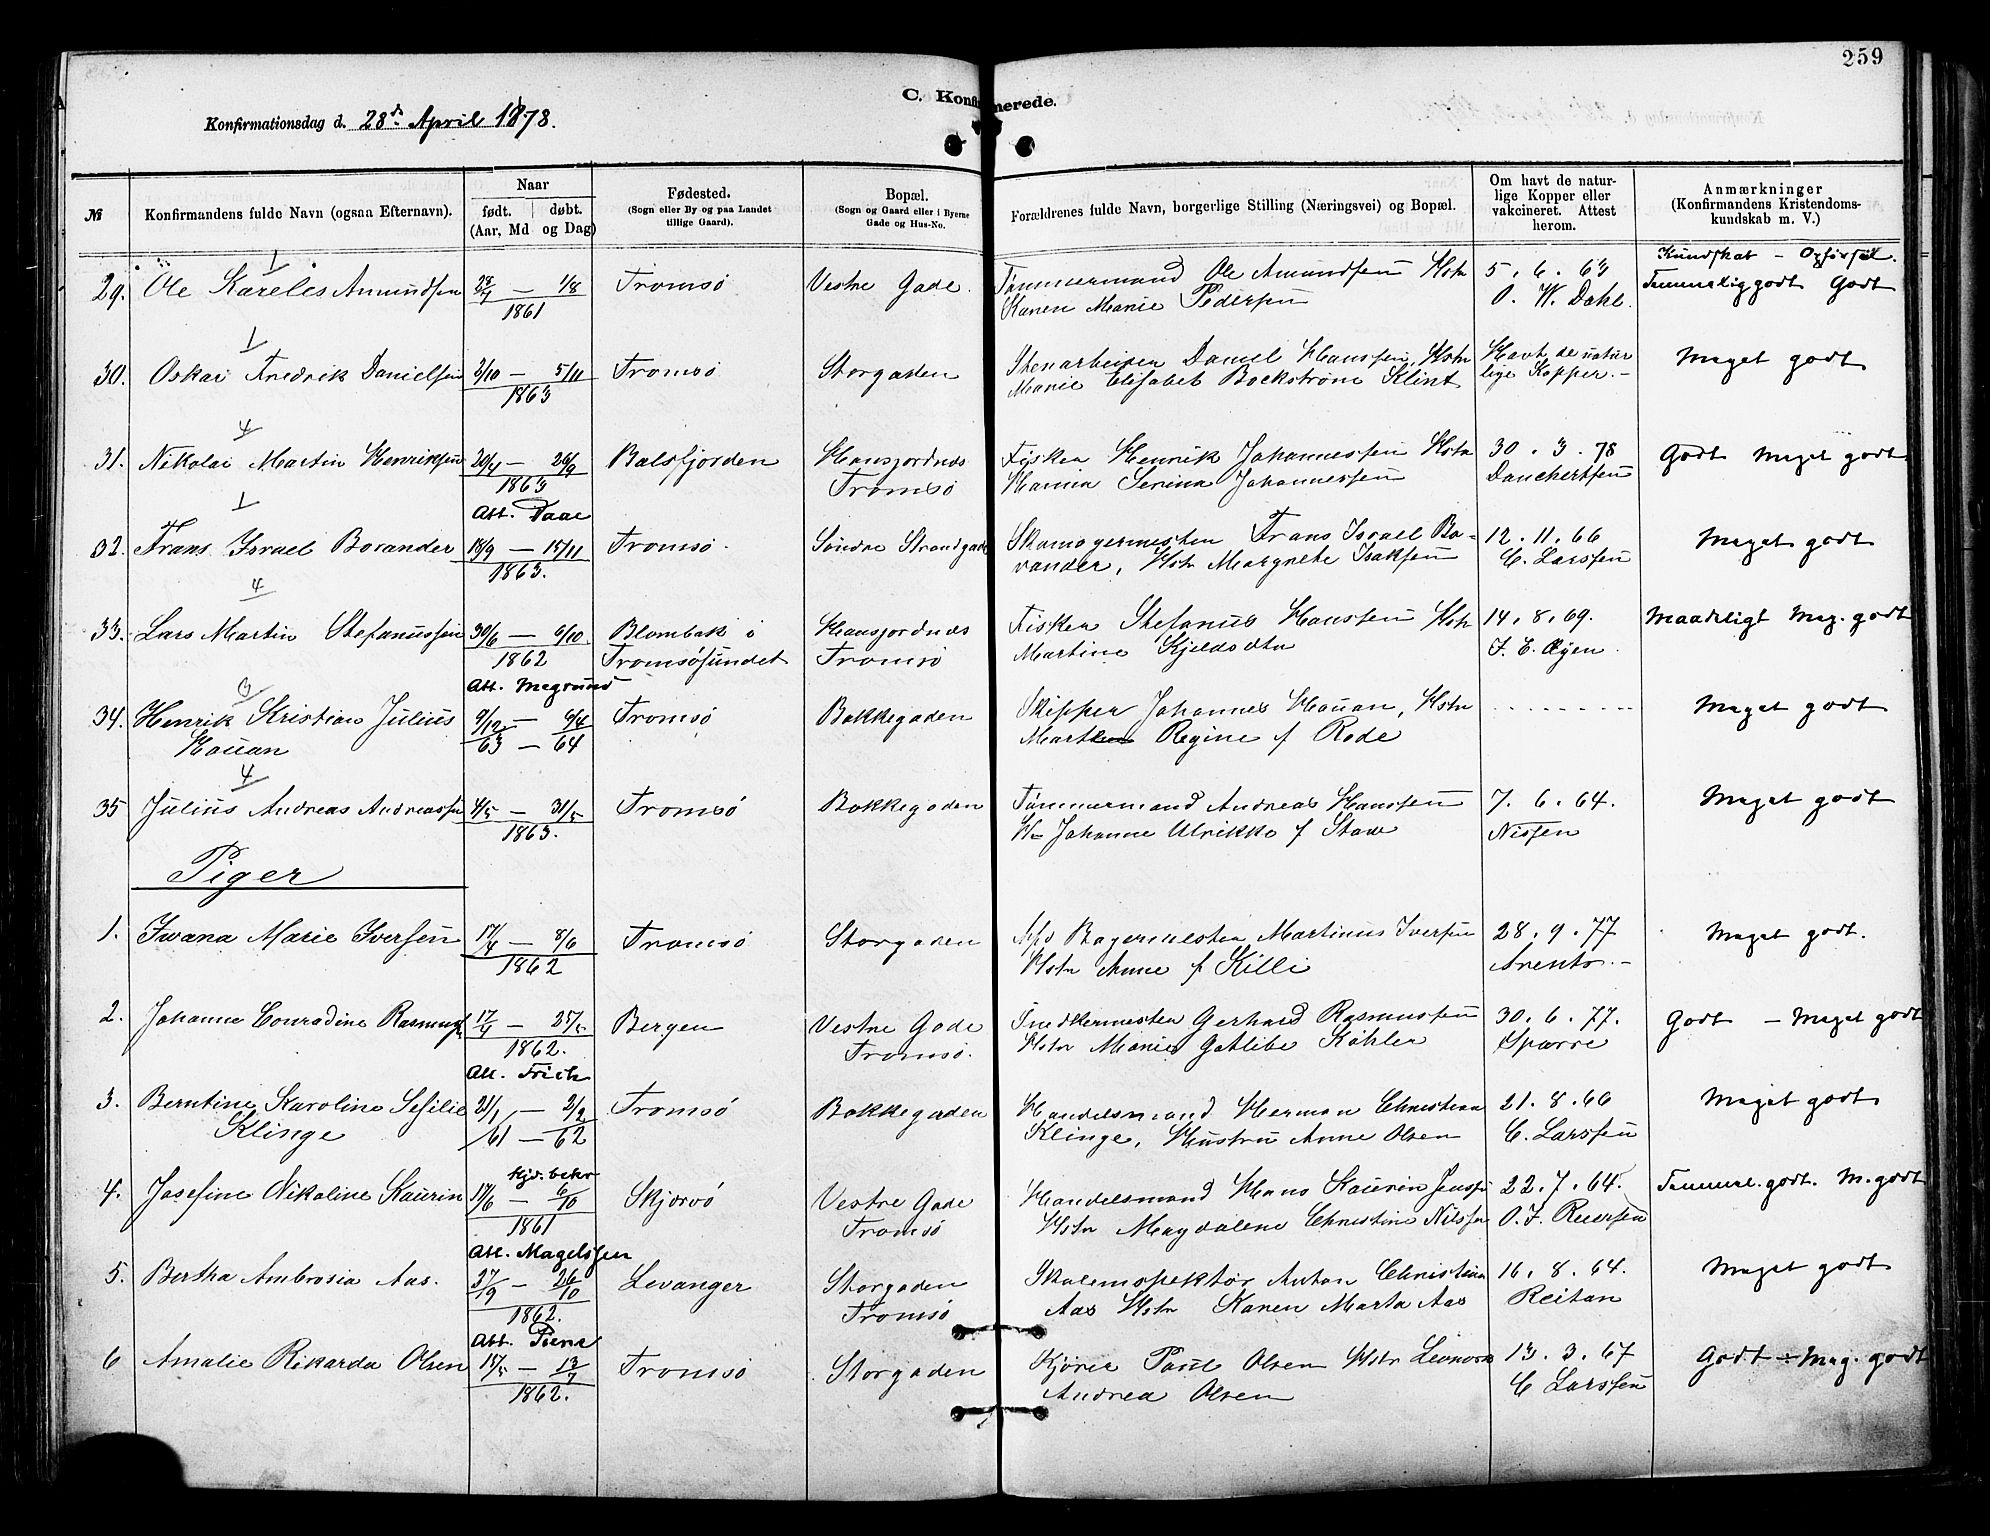 259
C. Konfirmerede.
Konfirmationsdag d. 28de April 1878.
No
Konfirmandens fulde Navn (ogsaa Efternavn).
Naar
født. | døbt.
(Aar, Md og Dag)
Fødested.
(Sogn eller By og paa Landet
tillige Gaard).
Bopæl.
(Sogn og Gaard eller i Byerne
Gade og Hus-No.
Forældrenes fulde Navn, borgerlige Stilling (Næringsvei) og Bopæl.
Om havt de natur-
lige Kopper eller
vakcineret. Attest
herom.
Anmærkninger
(Konfirmandens Kristendoms-
kundskab m. V.)
Kundskab - Opførsel.
1
29. Ole Kareles Amundsen 1/8 Tromsø Vestre Gade. Tømmermand Ole Amundsen Hstr 5. 6. 63 Temmelig godt Godt
1861 Karen Marie Pedersen O. W. Dahl.
1
30. Oskar Fredrik Danielsen 3/10 - 5/11 Tromsø Storgaden Stenarbeider Daniel Hanssen, Hstr Havt de natur Meget godt
1863 Marie Elisabet Bockstrøm Klint lige Kopper. -
4
31. Nikolai Martin Henriksen 20/4 - 26/9 Balsfjorden Hansjordnes Fisker Henrik Johannessen Hstr 30. 3. 78 Godt Meget godt
1863 Tromsø Serina Johannessen Danckertsen
1
Att. Daae
32. Frans Israel Borander 18/9 - 15/11 Tromsø. Søndre Strandgade Skomagermester Frans Israel Bo- 12. 11. 66 Meget godt
1863. rander, Hstr Margrethe Isaksen C. Larssen
4
33. Lars Martin Stefanussen 30/6 - 6/10. Blombak i Hansjordnes Fisker Stefanus Hanssen Hstr 14. 8. 69. Maadeligt Meg. godt
1862 Tromsøsundet Tromsø Martine Kjeldsdtr J. C. Øyen.
3
Att. Megrund
34. Henrik Kristian Julius 9/12 - 6/4 Tromsø Bakkegaden Skipper Johannes Hauan, Hstr Meget godt
Hauan 63 - 64 Regine f Rode
4
35 Julius Andreas Andreassen 4/5 - 31/5 Tromsø Bakkegaden Tømmermand Andreas Hanssen 7. 6. 64. Meget godt
1863. Johanne Ulrikke f Nissen
Piger
1. Ivana Marie Iversen 17/4 - 8/6 Tromsø Storgaden Bagermester Martinus Iversen 28. 9. 77 Meget godt.
1862 Hstr Anne f Killi Arentz. -
2. Johanne Conradine Rasmussen 17/4 - 25/5 Bergen Vestre Gade Snedkermester Gerhard Rasmussen 30. 6. 77. Godt - Meget godt
1862. Tromsø. Hstr Marie Gotlibe Köhler Sparre
Att. Frich
3. Berntine Karoline Sesilie 21/1 - 2/2 Tromsø Bakkegaden Handelsmand Herman Christian 21. 8. 66 Meget godt
Klinge 61 - 62 Klinge, Hustru Anne Olsen C. Larssen
4. Josefine Nikoline Kaurin 17/6 - 6/10 Skjervø Vestre Gade Handelsmand Hans Kaurin Jenssen 22. 7. 64. Temmel. godt. M. godt
1861 Tromsø Hstr Magdalene Christine Nilssen O. J. Reiersen
Att. Magelssen
5. Bertha Ambrosia Aas. 27/9 - 26/10 Levanger Storgaden Skoleinspektør Anton Christian 16. 8. 64. Meget godt
1862. Tromsø Aas Hstr Karen Marta Aas Reitan
Att.
6 Amalie Rikarda Olsen 15/5 - 13/7 Tromsø Storgaden Kjører Paul Olsen Hstr Leonora 13. 3. 67 Godt - Meg. godt
1862. Andrea Olsen C Larssen